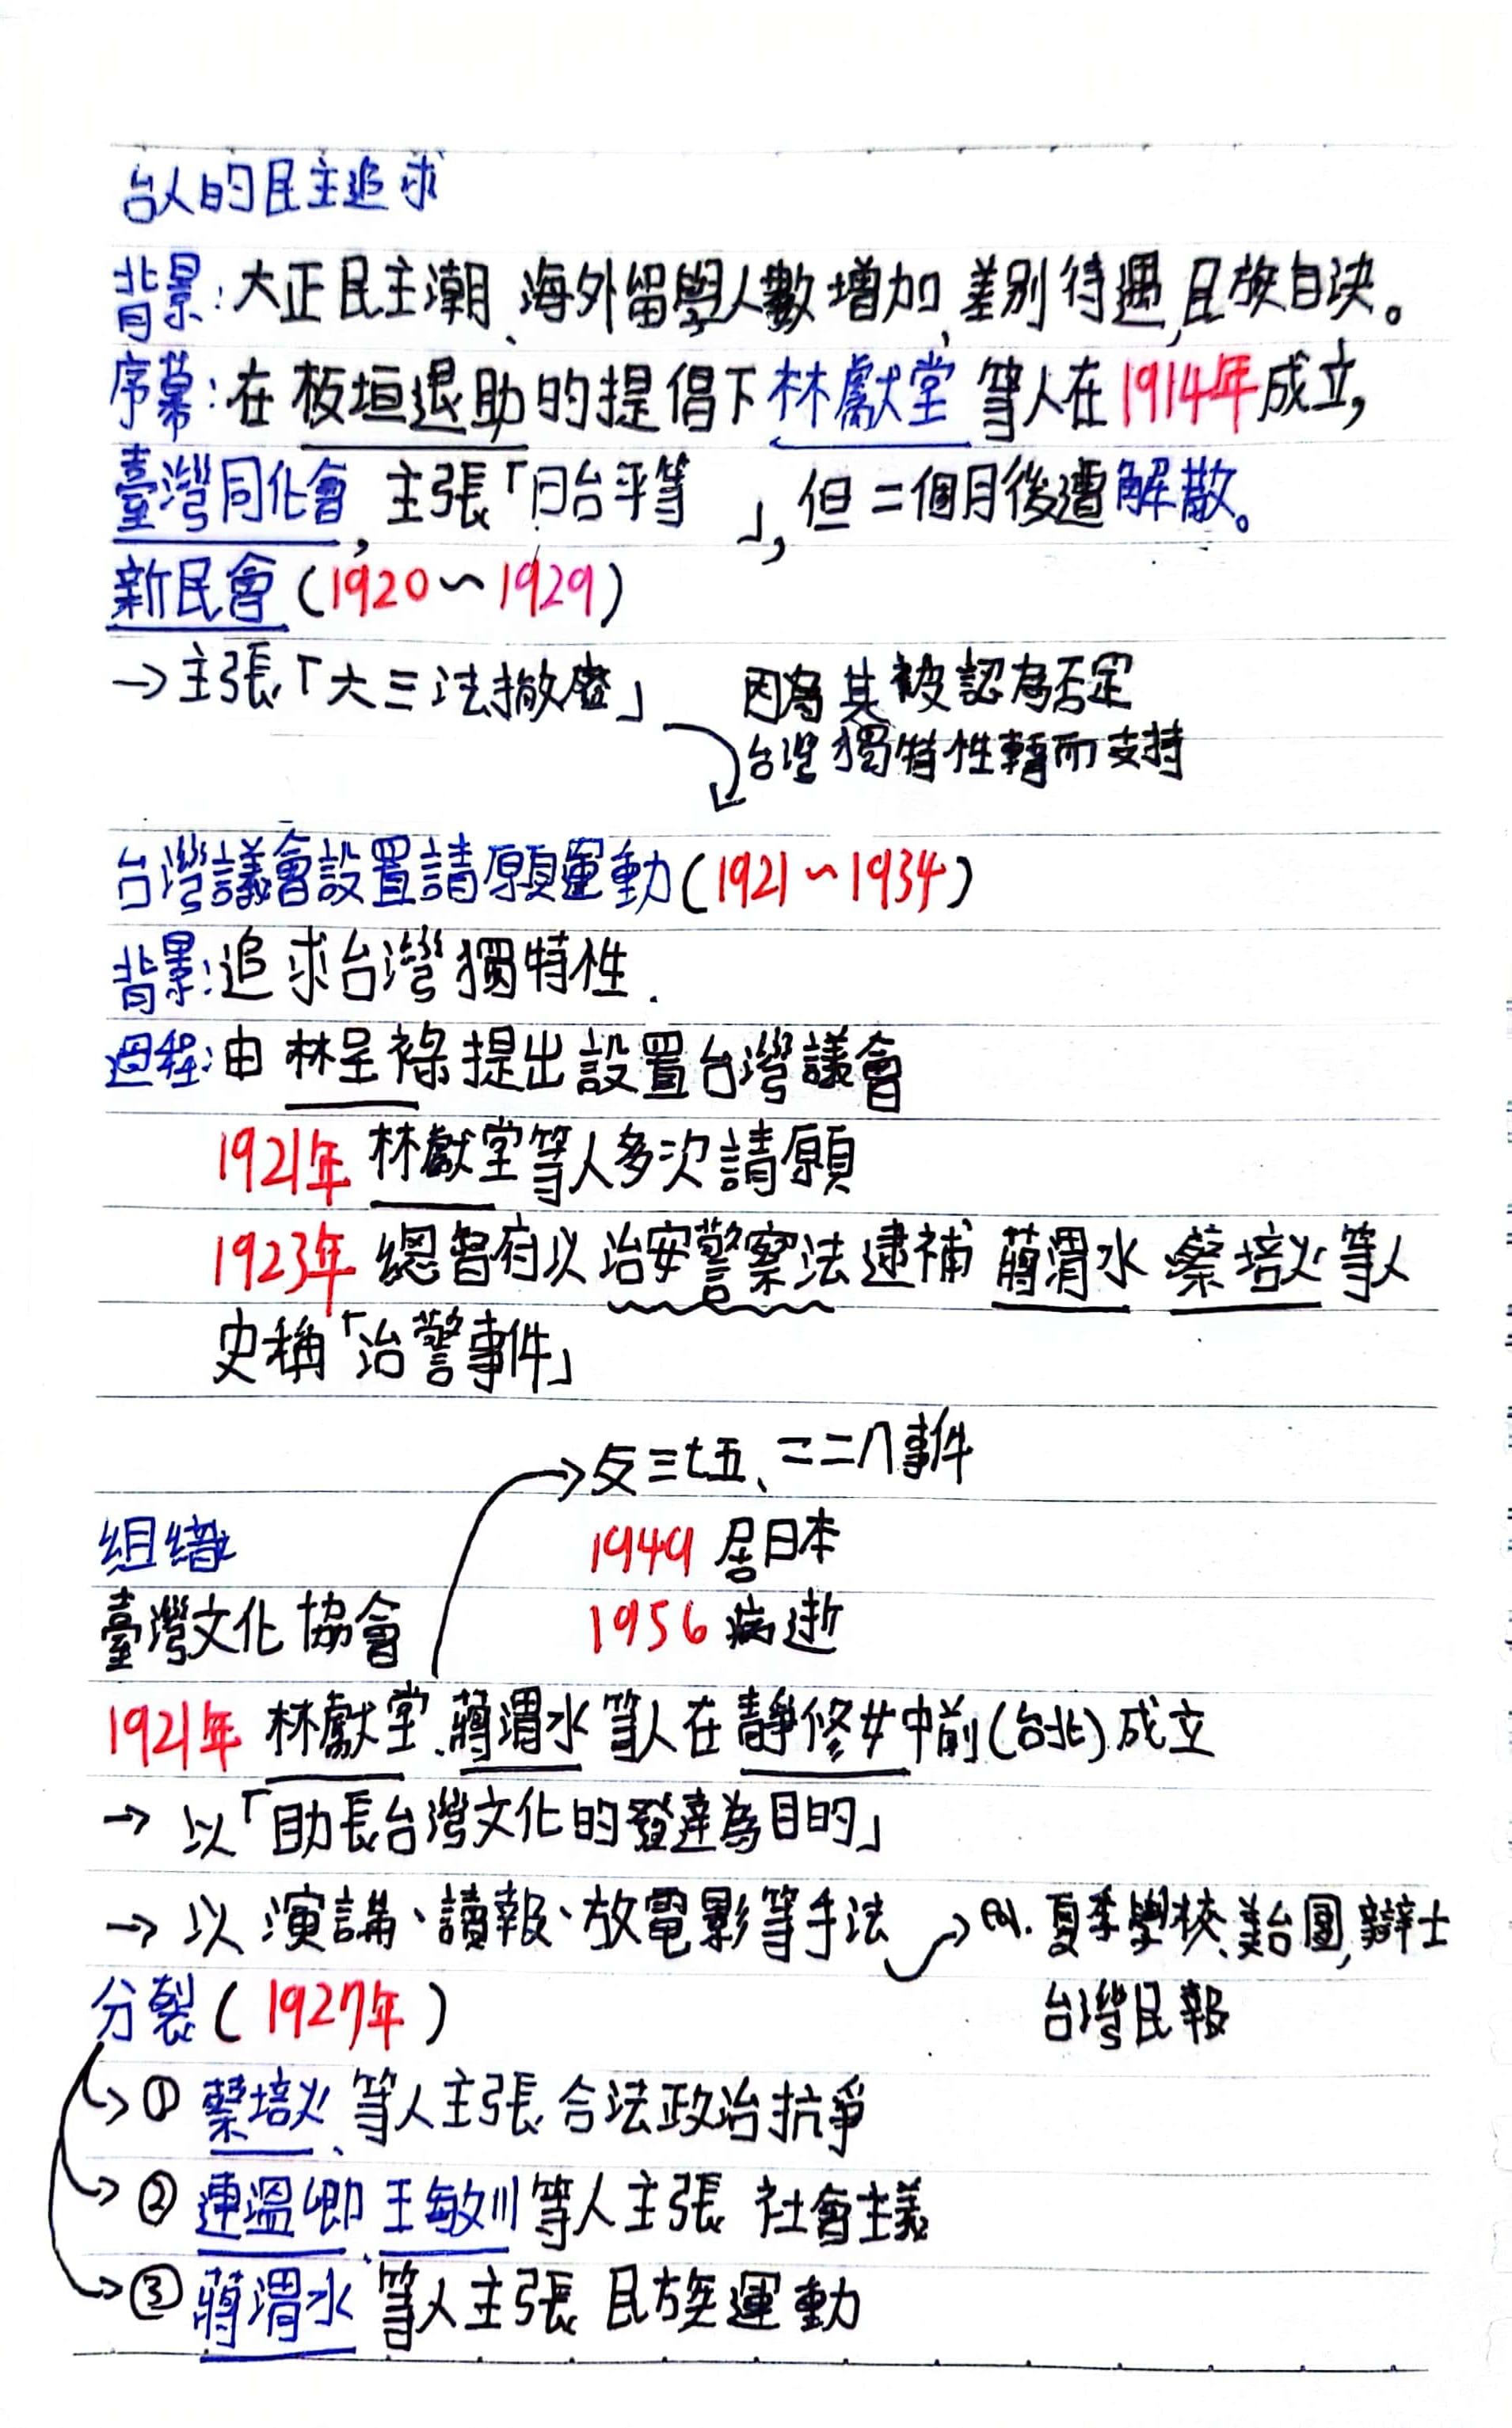 台人的民主追求
背景:大正民主潮、海外留學人數增加,差別待遇,民族自決。
序幕:在板垣退助的提倡下林獻堂等人在1914年成立,
臺灣同化會,主張「日台平等」,但二個月後遭解散。
新民會(1920~1929)
→主張「六三法撤廢」
因為其被認為否定
台灣獨特性轉而支持
台灣議會設置請願運動(1921~1934)
背景:追求台灣獨特性.
過程:由林呈祿提出設置台灣議會
1921年 林獻堂等人多次請願
1923年 總督府以治安警察法逮補 蔣渭水 蔡培火等人
史稱「治警事件」
→反三七五、二二八事件
組織
1949 居日本
臺灣文化協會
1956 病逝
1921年 林獻堂、蔣渭水等人在靜修女中前(台北)成立
→ 以「助長台灣文化的發達為目的」
→ 以演講、讀報、放電影等手法 → 例. 夏季學校、美台團,辯士
台灣民報
分裂(1927年)
→① 蔡培火、等人主張 合法政治抗爭
→② 連溫卿、王敏川等人主張 社會主義
→③ 蔣渭水 等人主張 民族運動